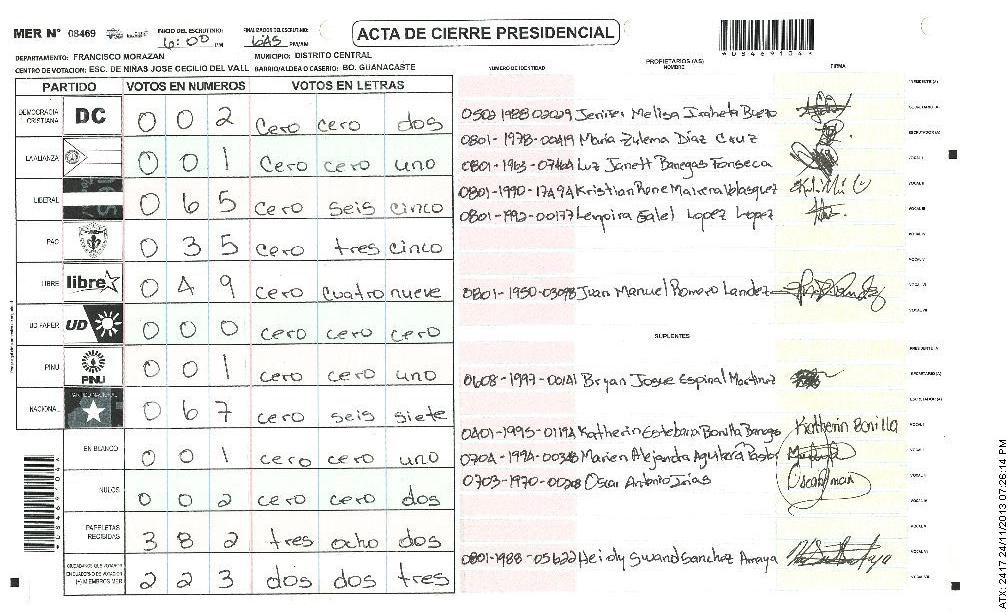 MER N° 08469 INICIO DEL ESCRUTINIO: 6:00 PM FINALIZACION DEL ESCRUTINIO: PM/AM
ACTA DE CIERRE PRESIDENCIAL
DEPARTAMENTO: FRANCISCO MORAZAN MUNICIPIO: DISTRITO CENTRAL
CENTRO DE VOTACION: ESC. DE NIÑAS JOSE CECILIO DEL VALL BARRIO/ALDEA O CASERIO: BO. GUANACASTE
PARTIDO VOTOS EN NUMEROS VOTOS EN LETRAS
DEMOCRACIA CRISTIANA DC 0 0 2 cero cero dos
LA ALIANZA 0 0 1 cero cero uno
LIBERAL 0 6 5 cero seis cinco
PAC 0 3 5 cero tres cinco
LIBRE libre 0 4 9 cero cuatro nueve
UD FAPER UD 0 0 0 cero cero cero
PINU PINU 0 0 1 cero cero uno
NACIONAL 0 6 7 cero seis siete
EN BLANCO 0 0 1 cero cero uno
NULOS 0 0 2 cero cero dos
PAPELETAS RECIBIDAS 3 8 2 tres ocho dos
CIUDADANOS QUE VOTARON 2 2 3 dos dos tres
(+) MIEMBROS MER
NUMERO DE IDENTIDAD PROPIETARIOS (AS) NOMBRE FIRMA
PRESIDENTE (A)
Melisa SECRETARIO (A)
0801-1978-00419 María Zulema Díaz Cruz ESCRUTADOR (A)
Luz Janett Banegas Fonseca VOCAL I
0801-1990-17494 Kristian Rene VOCAL II
0801-1992-00177 Lopez Lopez VOCAL III
VOCAL IV
VOCAL V
0801-1950-03098 Juan Manuel Romero VOCAL VI
VOCAL VII
SUPLENTES
PRESIDENTE (A)
0608-1997-00141 Bryan Josue Espinal Martinez SECRETARIO (A)
ESCRUTADOR (A)
0401-1995-01194 Katherin Estebana Bonilla Banegas Katherin Bonilla VOCAL I
Alejandra Aguilera VOCAL II
Oscar Antonio VOCAL III
VOCAL IV
VOCAL V
0801-1988-05622 Heidy Sanchez VOCAL VI
VOCAL VII
ATX: 2417 24/11/2013 07:26:14 PM